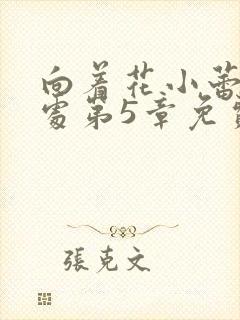 向着花小蕾
处第5章免费
张克文